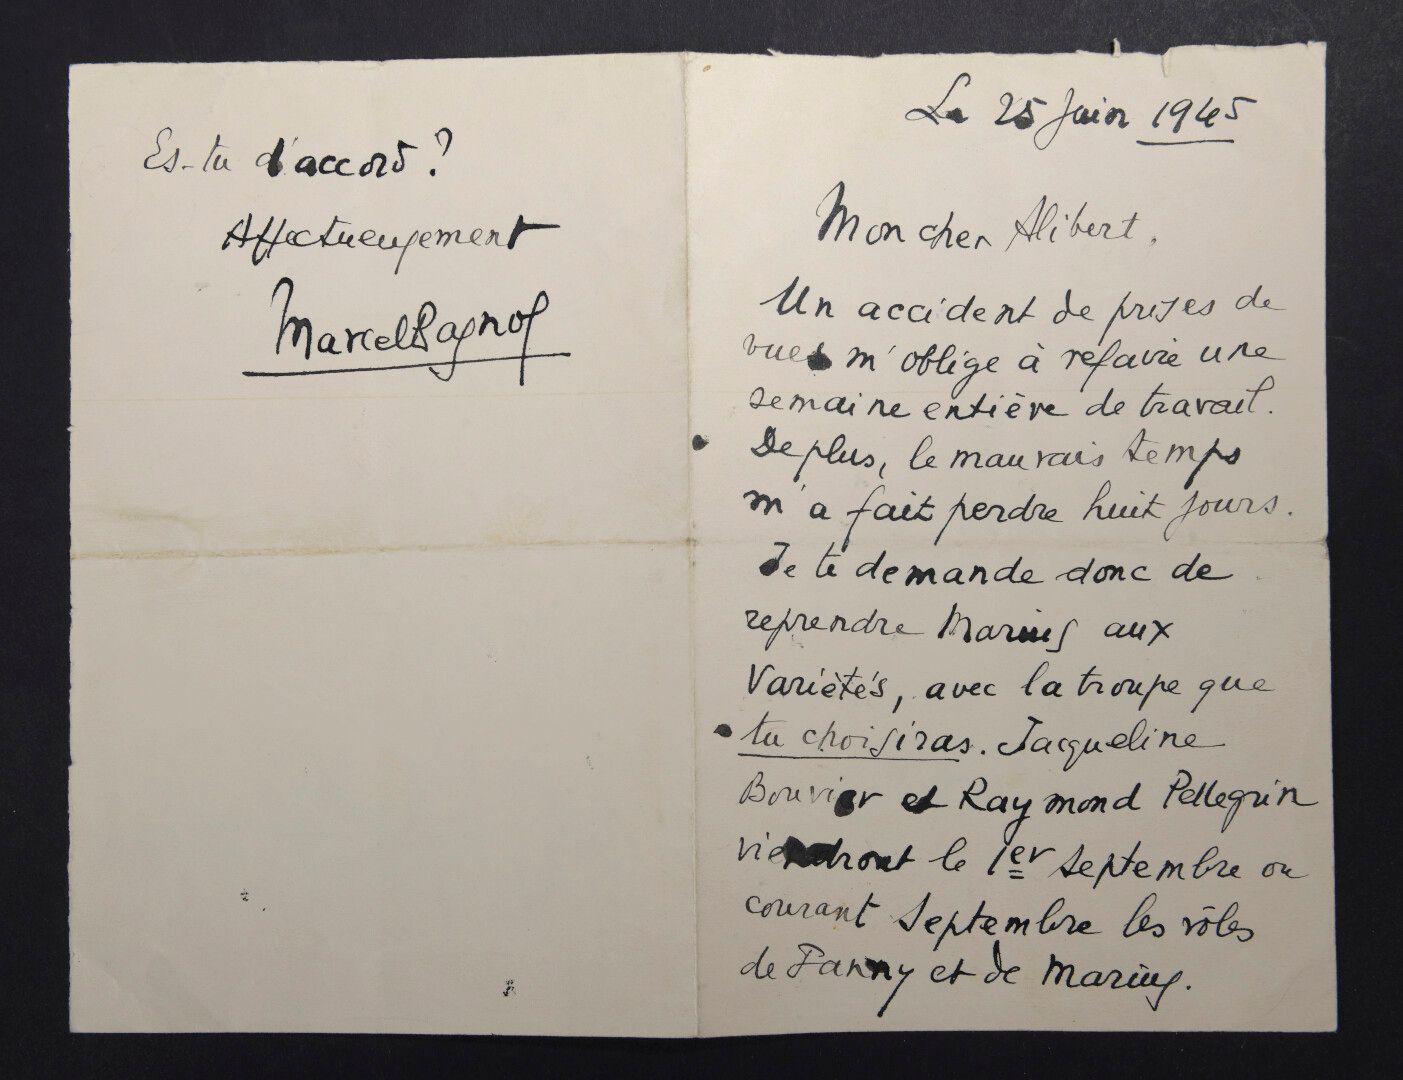 Le 25 Juin 1945
Mon cher Alibert,
Un accident de prises de
vues m'oblige à refaire une
semaine entière de travail.
De plus, le mauvais temps
m'a fait perdre huit jours.
Je te demande donc de
reprendre Marius aux
Variétés, avec la troupe que
tu choisiras. Jacqueline
Bouvier et Raymond Pellegrin
viendront le 1er Septembre ou
courant Septembre les rôles
de Fanny et de Marius.
Es-tu d'accord ?
Affectueusement
Marcel Pagnol